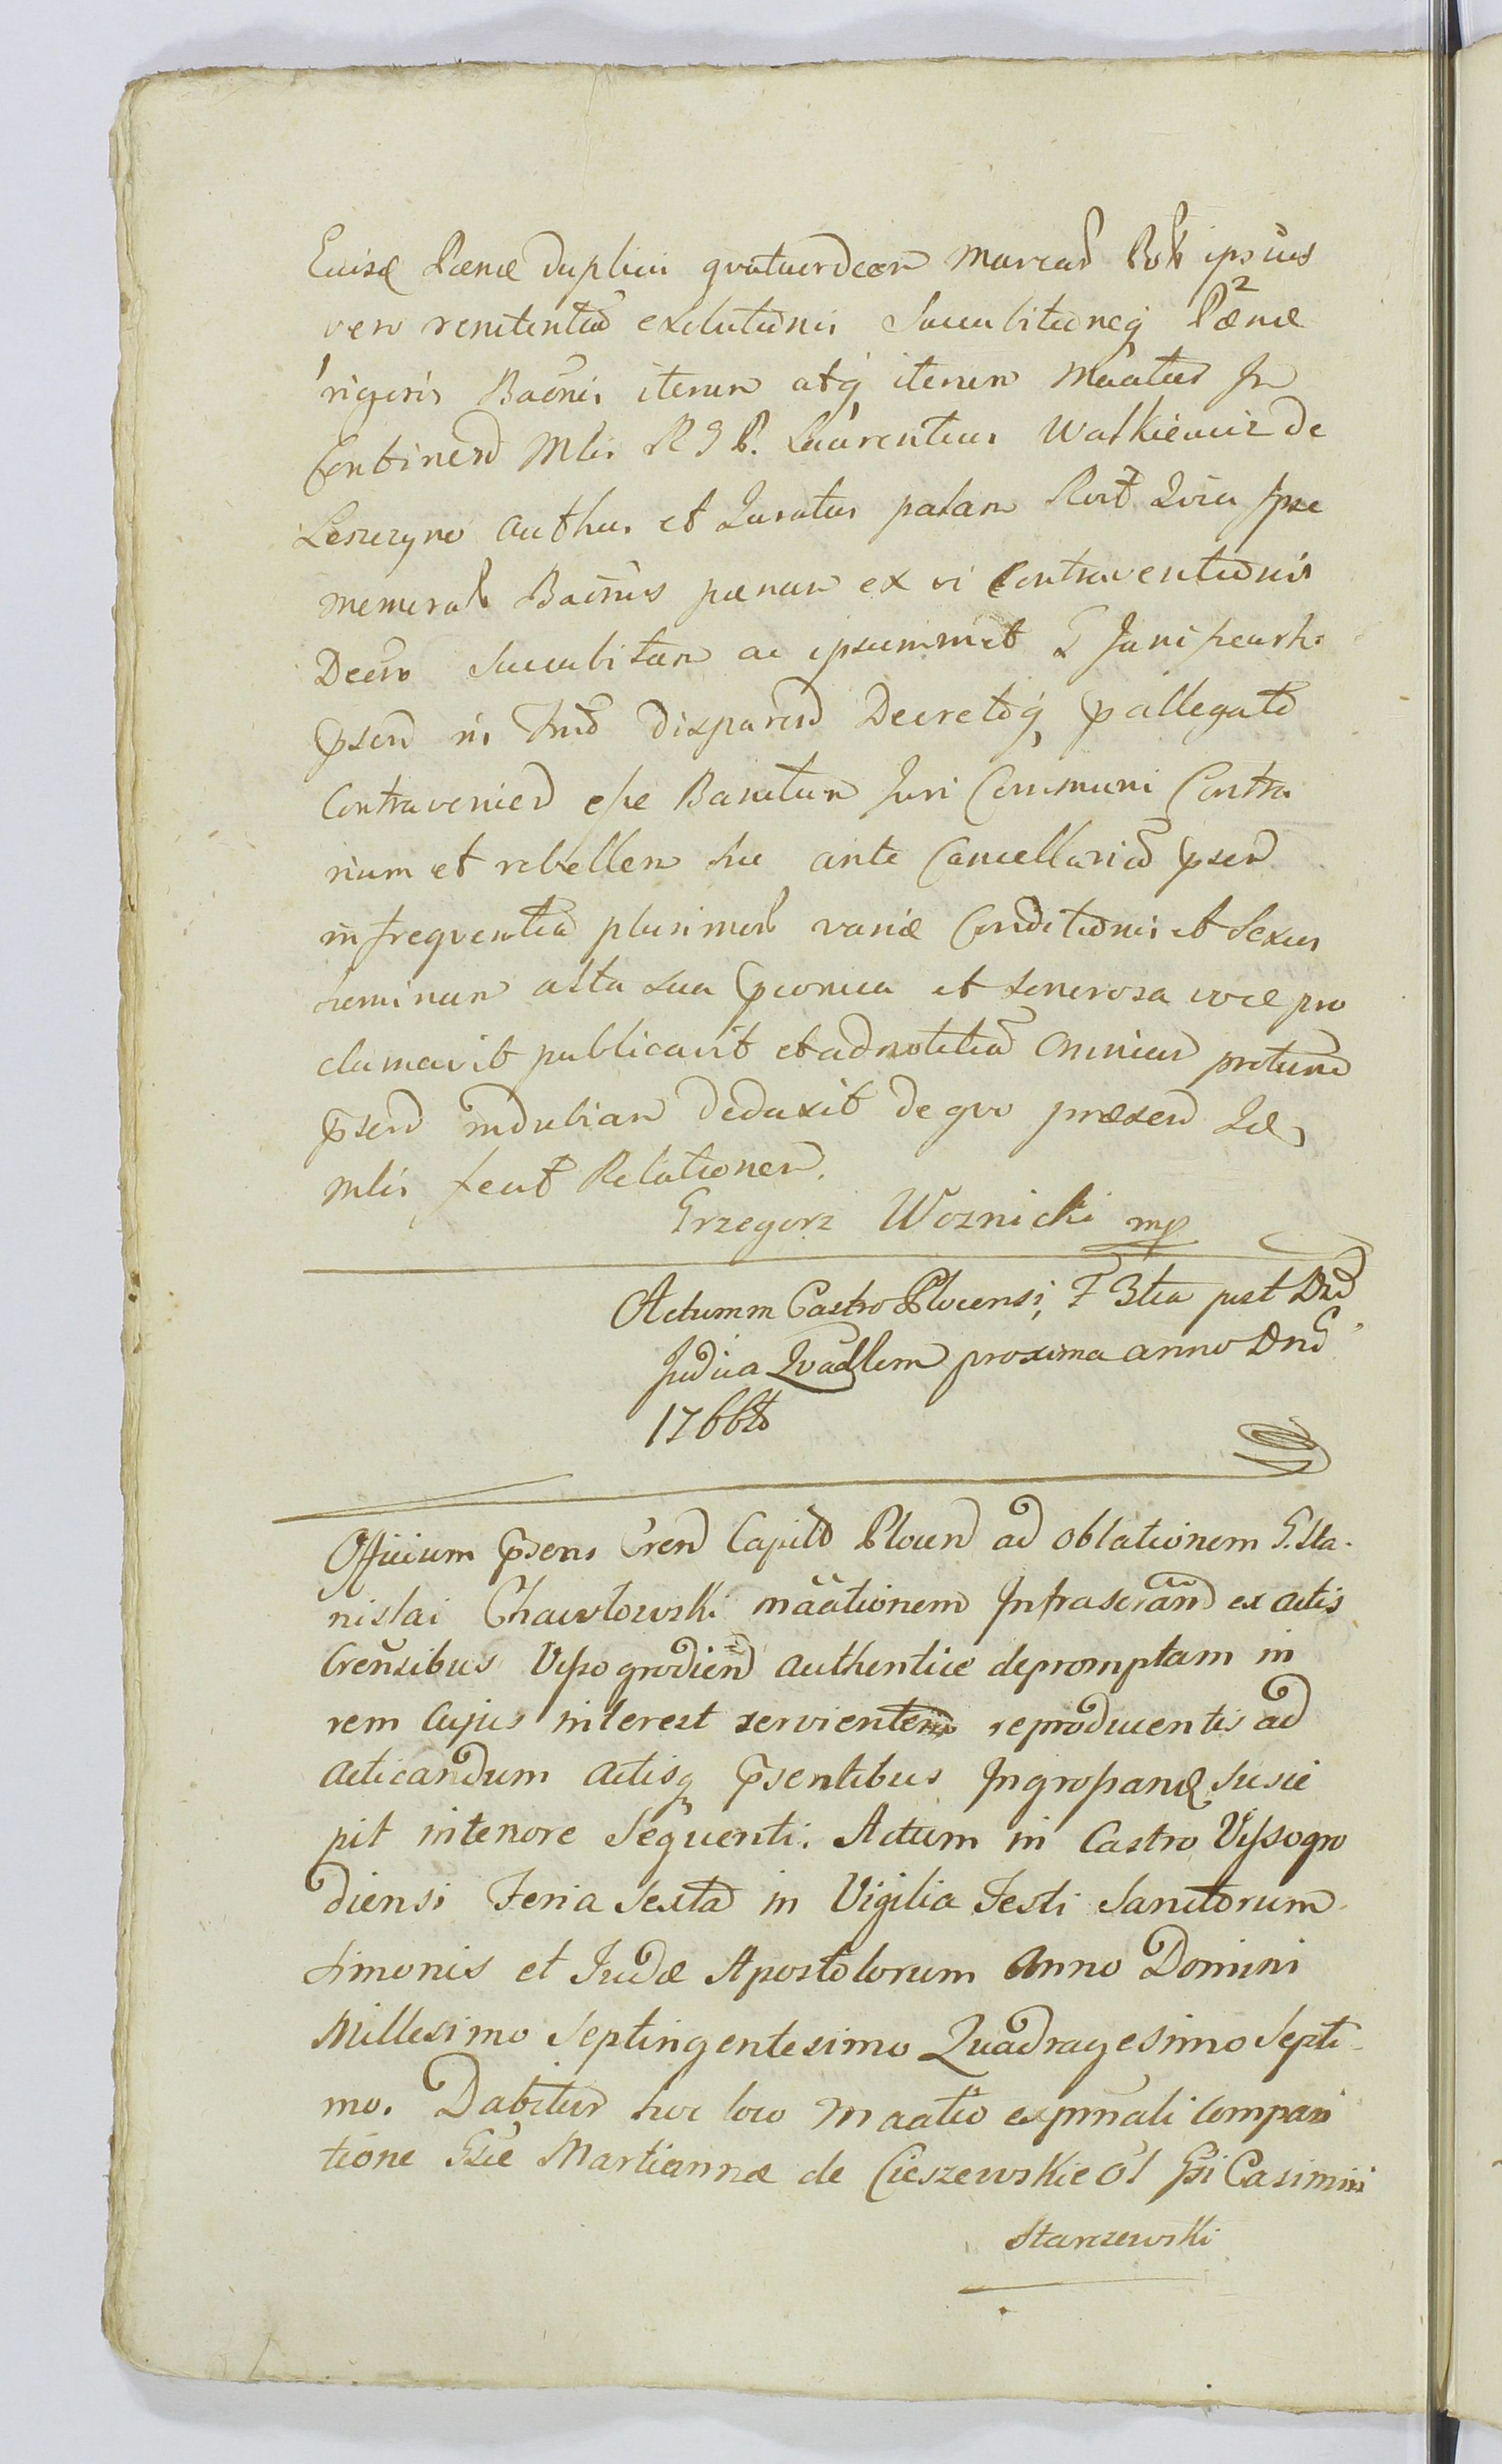 Pœnæ duplici qvatuordecem Marcar Pol ipsius
vero renitentiæ exolutionis Succubitioneq Pœnæ
rigoris Bãonis iterum atq iterum Mãatus In
Continend Mlis R G P. Laurentius Watkiewicz de
Leszczyno authus et Juratus palam Quia ipse
memorat Bãonis pœnam ex vi Contraventionis
Decro Succubitam ac ipsummet
psend ni disparend Decretoq p allegato
Contraveniend esse Banitum Juri Communi Contra
rium et rebellem hic ante Cancellariã psend
in freqventia plurimor variæ Conditionis et Sexus
hominum alta sua pconica et sonorosa voce pro
clamavit publicavit et ad notitiã Omnium protunc
psend indubiam deduxit de qvo præsend
mlis fecit Relationem.
Grzegorz Woznicki mp
Actum in Castro Plocensi, F 3tia post Dnã
Judica Qvadlem proxima anno Dni
1766to
Officium psens Cren Capitl Plocen ad oblationem G. Sta-
nislai Chawlowski mãationem Infrascran ex actis
Crensibus Vyssogrodien authentice depromptam in
rem Cujus interest servientem reproducentis ad
acticandum actisq psentibus Ingrossand Susce
pit in tenore Seqventi. Actum in Castro Vyssogro
diensi Feria Sexta in Vigilia Festi Sanctorum
Simonis et Judæ Apostolorum Anno Domini
Millesimo Septingentesimo Quadragesimo Septi-
mo. Dabitur hoc loco Mãatio ex pnali Compari
tione Gsæ Martiannæ de Cieszewskie Gsi Casimiri
Starczewski